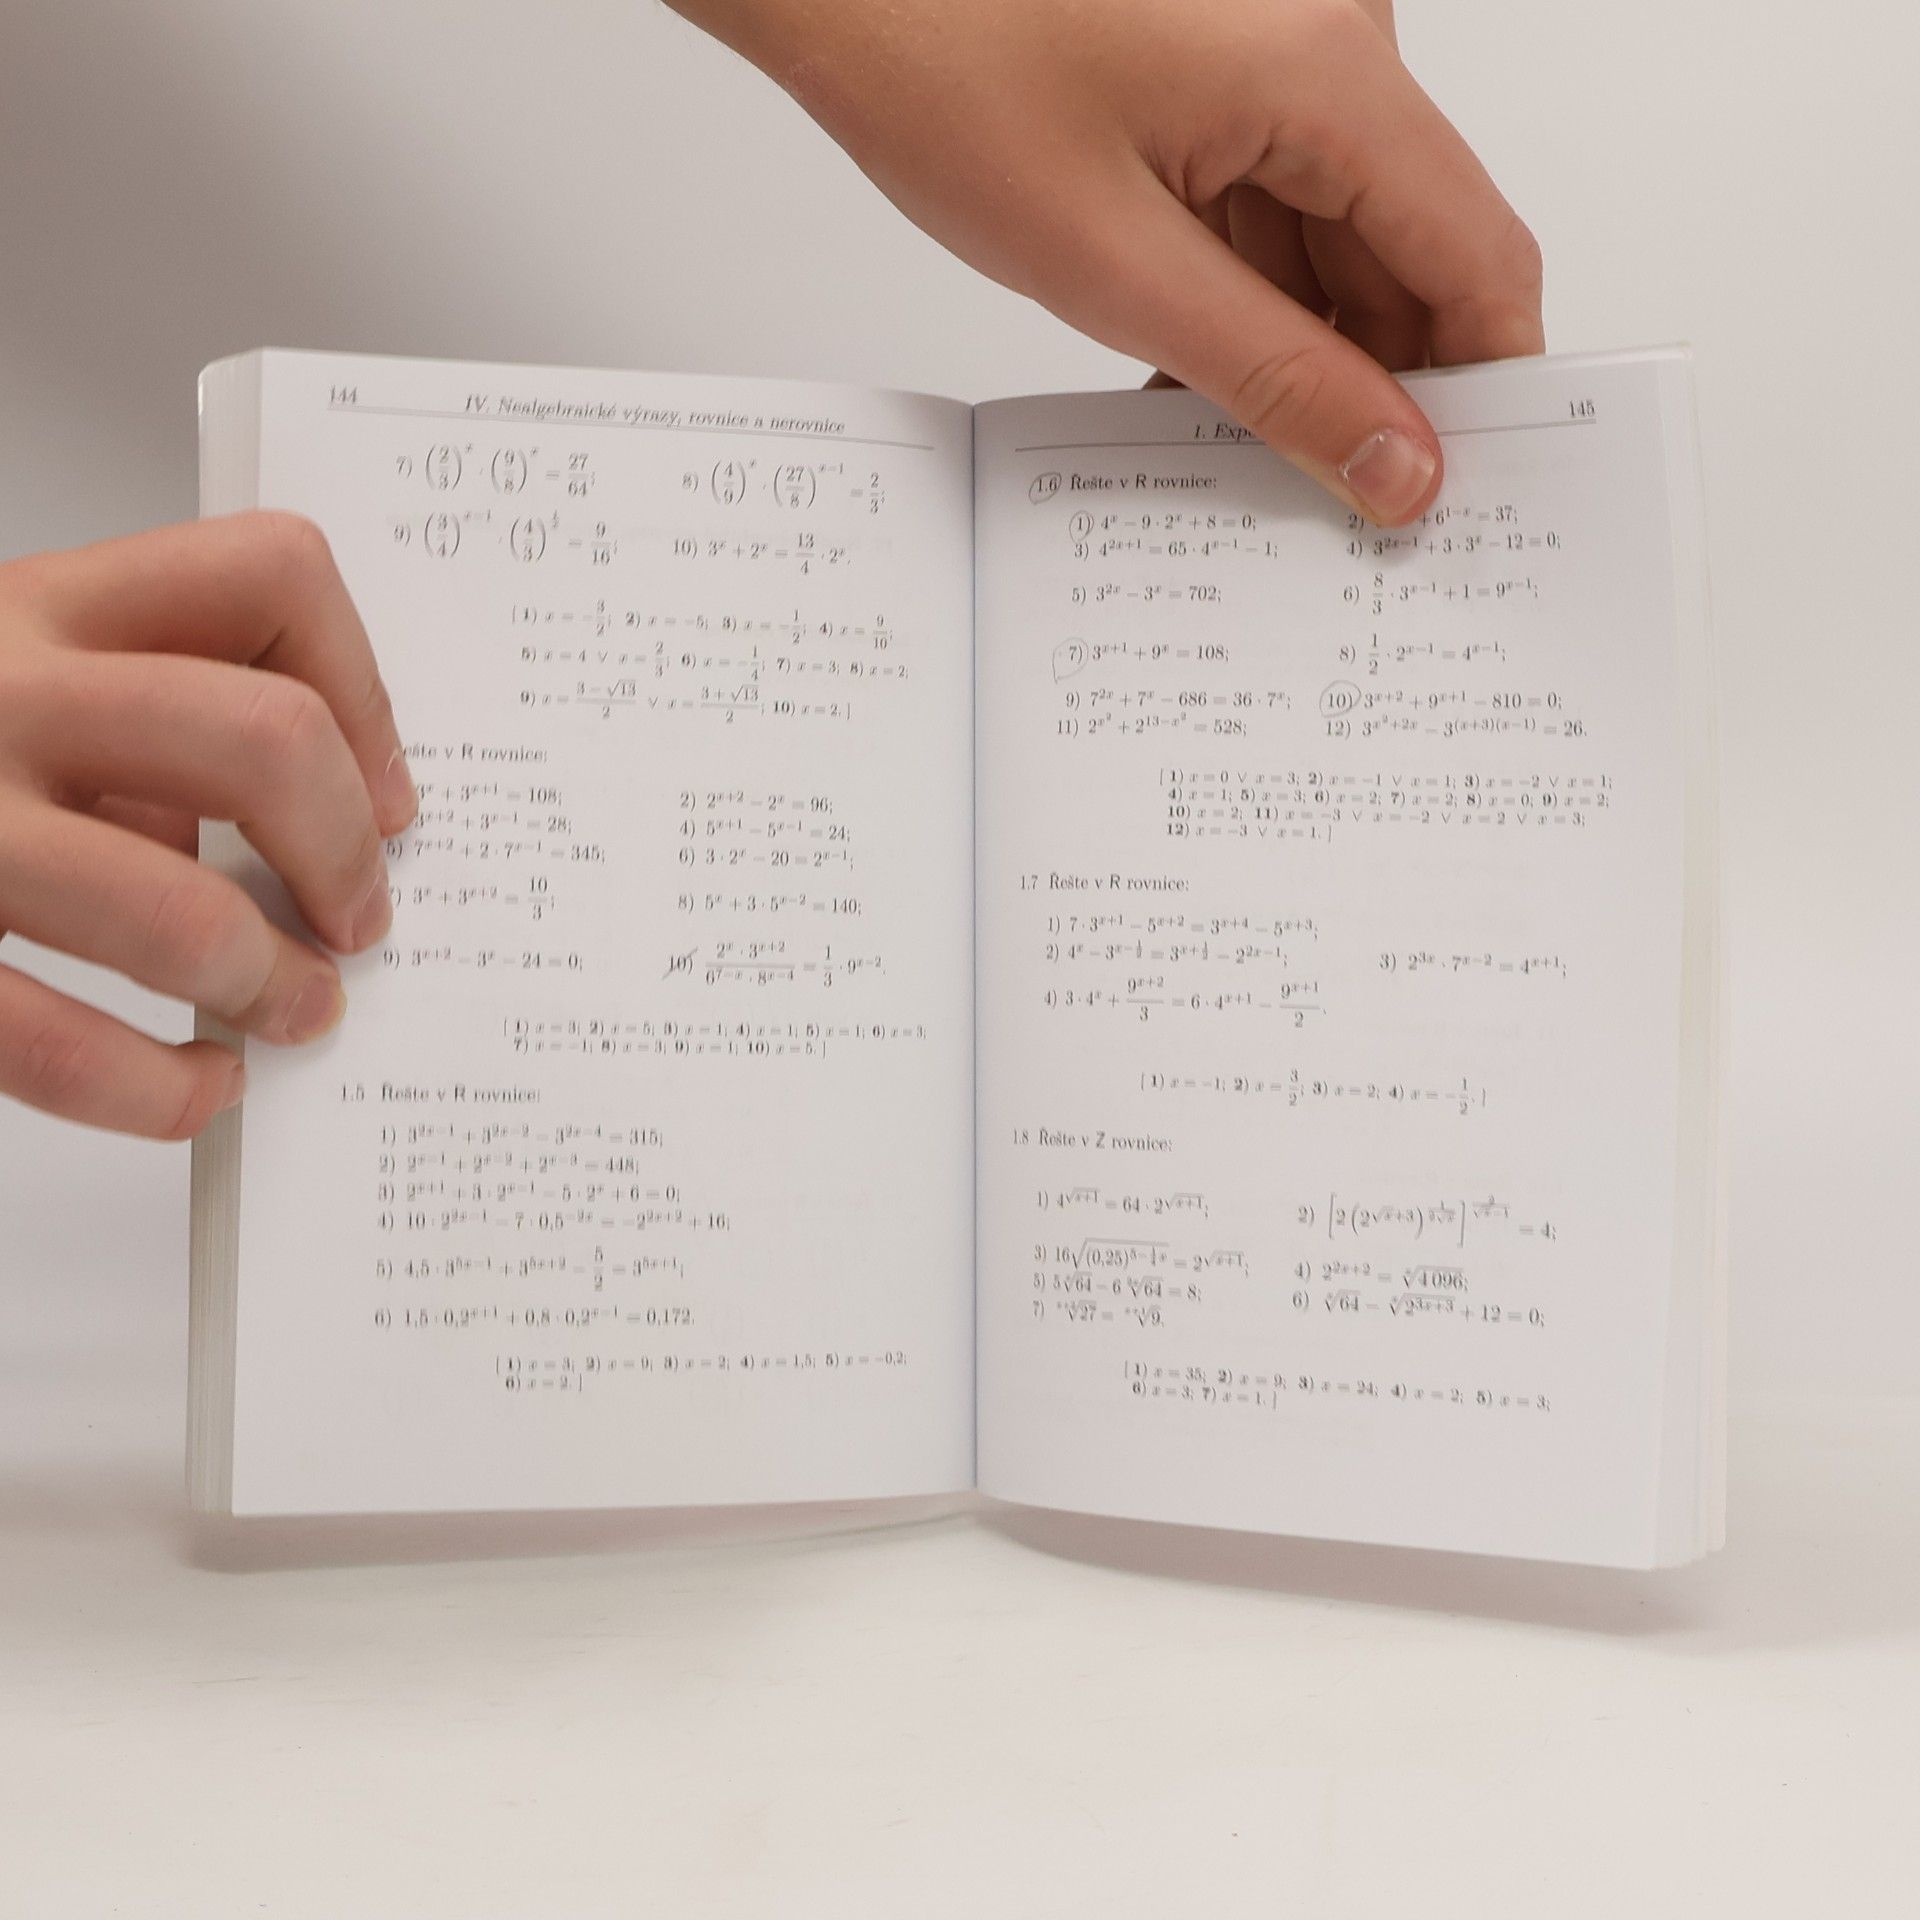 144 IV. Nealgebraické výrazy, rovnice a nerovnice
7) (2/3)^x · (9/8)^x = 27/64; 8) (4/9)^x · (27/8)^(x−1) = 2/3;
9) (3/4)^(x−1) · (4/3)^(1/x) = 9/16; 10) 3^x + 2^x = 13/4 · 2^x.
[ 1) x = −3/2; 2) x = −5; 3) x = −1/2; 4) x = 9/10;
5) x = 4 ∨ x = 2/3; 6) x = −1/4; 7) x = 3; 8) x = 2;
9) x = (3 − √13)/2 ∨ x = (3 + √13)/2; 10) x = 2. ]
v R rovnice:
+ 3^(x+1) = 108; 2) 2^(x+2) − 2^x = 96;
3^(x+2) + 3^(x−1) = 28; 4) 5^(x+1) − 5^(x−1) = 24;
5) 7^(x+2) + 2 · 7^(x−1) = 345; 6) 3 · 2^x − 20 = 2^(x−1);
) 3^x + 3^(x+2) = 10/3; 8) 5^x + 3 · 5^(x−2) = 140;
9) 3^(x+2) − 3^x − 24 = 0; 10) (2^x · 3^(x+2))/(6^(7−x) · 8^(x−4)) = 1/3 · 9^(x−2).
[ 1) x = 3; 2) x = 5; 3) x = 1; 4) x = 1; 5) x = 1; 6) x = 3;
7) x = −1; 8) x = 3; 9) x = 1; 10) x = 5. ]
1.5 Řešte v R rovnice:
1) 3^(2x−1) + 3^(2x−2) − 3^(2x−4) = 315;
2) 2^(x−1) + 2^(x−2) + 2^(x−3) = 448;
3) 2^(x+1) + 3 · 2^(x−1) − 5 · 2^x + 6 = 0;
4) 10 · 2^(2x−1) − 7 · 0,5^(−2x) = −2^(2x+2) + 16;
5) 4,5 · 3^(5x−1) + 3^(5x+2) − 5/2 = 3^(5x+1);
6) 1,5 · 0,2^(x+1) + 0,8 · 0,2^(x−1) = 0,172.
[ 1) x = 3; 2) x = 9; 3) x = 2; 4) x = 1,5; 5) x = −0,2;
6) x = 2. ]
1. 145
1.6 Řešte v R rovnice:
1) 4^x − 9 · 2^x + 8 = 0; 2) + 6^(1−x) = 37;
3) 4^(2x+1) = 65 · 4^(x−1) − 1; 4) 3^(2x−1) + 3 · 3^x − 12 = 0;
5) 3^(2x) − 3^x = 702; 6) 8/3 · 3^(x−1) + 1 = 9^(x−1);
7) 3^(x+1) + 9^x = 108; 8) 1/2 · 2^(x−1) = 4^(x−1);
9) 7^(2x) + 7^x − 686 = 36 · 7^x; 10) 3^(x+2) + 9^(x+1) − 810 = 0;
11) 2^(x²) + 2^(13−x²) = 528; 12) 3^(x²+2x) − 3^((x+3)(x−1)) = 26.
[ 1) x = 0 ∨ x = 3; 2) x = −1 ∨ x = 1; 3) x = −2 ∨ x = 1;
4) x = 1; 5) x = 3; 6) x = 2; 7) x = 2; 8) x = 0; 9) x = 2;
10) x = 2; 11) x = −3 ∨ x = −2 ∨ x = 2 ∨ x = 3;
12) x = −3 ∨ x = 1. ]
1.7 Řešte v R rovnice:
1) 7 · 3^(x+1) − 5^(x+2) = 3^(x+4) − 5^(x+3);
2) 4^x − 3^(x−1/2) = 3^(x+1/2) − 2^(2x−1); 3) 2^(3x) · 7^(x−2) = 4^(x+1);
4) 3 · 4^x + 9^(x+2)/3 = 6 · 4^(x+1) − 9^(x+1)/2.
[ 1) x = −1; 2) x = 3/2; 3) x = 2; 4) x = −1/2. ]
1.8 Řešte v Z rovnice:
1) 4^√(x+1) = 64 · 2^√(x+1); 2) [2(2^(√x+3))^(1/(2√x))]^(2/(√x−1)) = 4;
3) 16√((0,25)^(5−¼x)) = 2^√(x+1); 4) 2^(2x+2) = ˣ√4 096;
5) 5 ˣ√64 − 6 ²ˣ√64 = 8; 6) ˣ√64 − ˣ√(2^(3x+3)) + 12 = 0;
7) √27 = √9.
[ 1) x = 35; 2) x = 9; 3) x = 24; 4) x = 2; 5) x = 3;
6) x = 3; 7) x = 1. ]